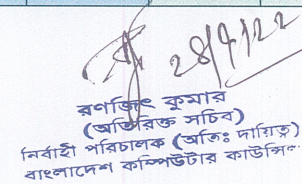 ২৪/৭/২২
রণজিৎ কুমার
(অতিরিক্ত সচিব)
নির্বাহী পরিচালক (অতিঃ দায়িত্ব)
বাংলাদেশ কম্পিউটার কাউন্সিল